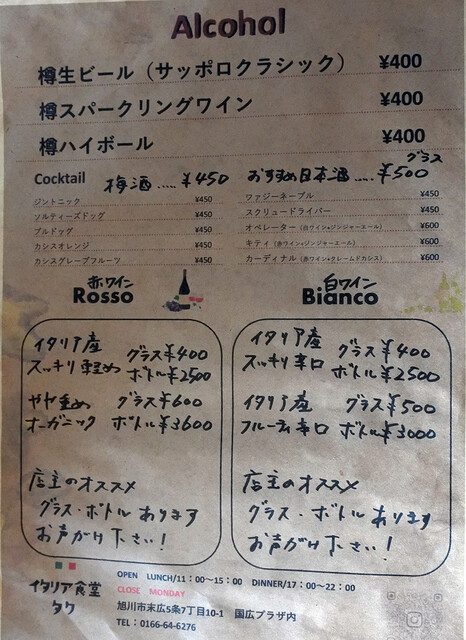 Alcohol
樽生ビール（サッポロクラシック） ¥400
樽スパークリングワイン ¥400
樽ハイボール ¥400
Cocktail 梅酒.....¥450 おすすめ日本酒.....グラス¥500
ジントニック ¥450 ファジーネーブル ¥450
ソルティーズドッグ ¥450 スクリュードライバー ¥450
ブルドッグ ¥450 オペレーター（白ワイン•ジンジャーエール） ¥600
カシスオレンジ ¥450 キティ（赤ワイン•ジンジャーエール） ¥600
カシスグレープフルーツ ¥450 カーディナル（赤ワイン•クレームドカシス） ¥600
赤ワイン
Rosso
イタリア産 グラス¥400
スッキリ軽め ボトル¥2500
やや重め グラス¥600
オーガニック ボトル¥3600
店主のオススメ
グラス・ボトルあります
お声がけ下さい！
白ワイン
Bianco
イタリア産 グラス¥400
スッキリ辛口 ボトル¥2500
イタリア産 グラス¥500
フルーティ辛口 ボトル¥3000
店主のオススメ
グラス・ボトルあります
お声がけ下さい！
イタリア食堂
タケ
OPEN LUNCH/11：00～15：00 DINNER/17：00～22：00
CLOSE MONDAY
旭川市末広5条7丁目10-1 国広プラザ内
TEL：0166-64-6276